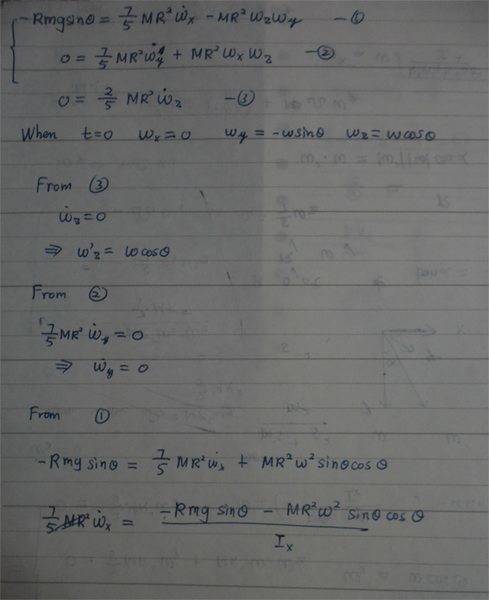 -Rmg sinθ = 7/5 MR² ω̇x - MR² ωzωy - ①
0 = 7/5 MR² ω̇y + MR² ωx ωz - ②
0 = 2/5 MR² ω̇z - ③
When t=0 ωx = 0 ωy = -ωsinθ ωz = ωcosθ
From ③
ω̇z = 0
⇒ ω'z = ωcosθ
From ②
7/5 MR² ω̇y = 0
⇒ ω̇y = 0
From ①
-Rmg sinθ = 7/5 MR² ω̇x + MR² ω² sinθcosθ
7/5 MR² ω̇x = (-Rmg sinθ - MR² ω² sinθ cosθ) / Ix